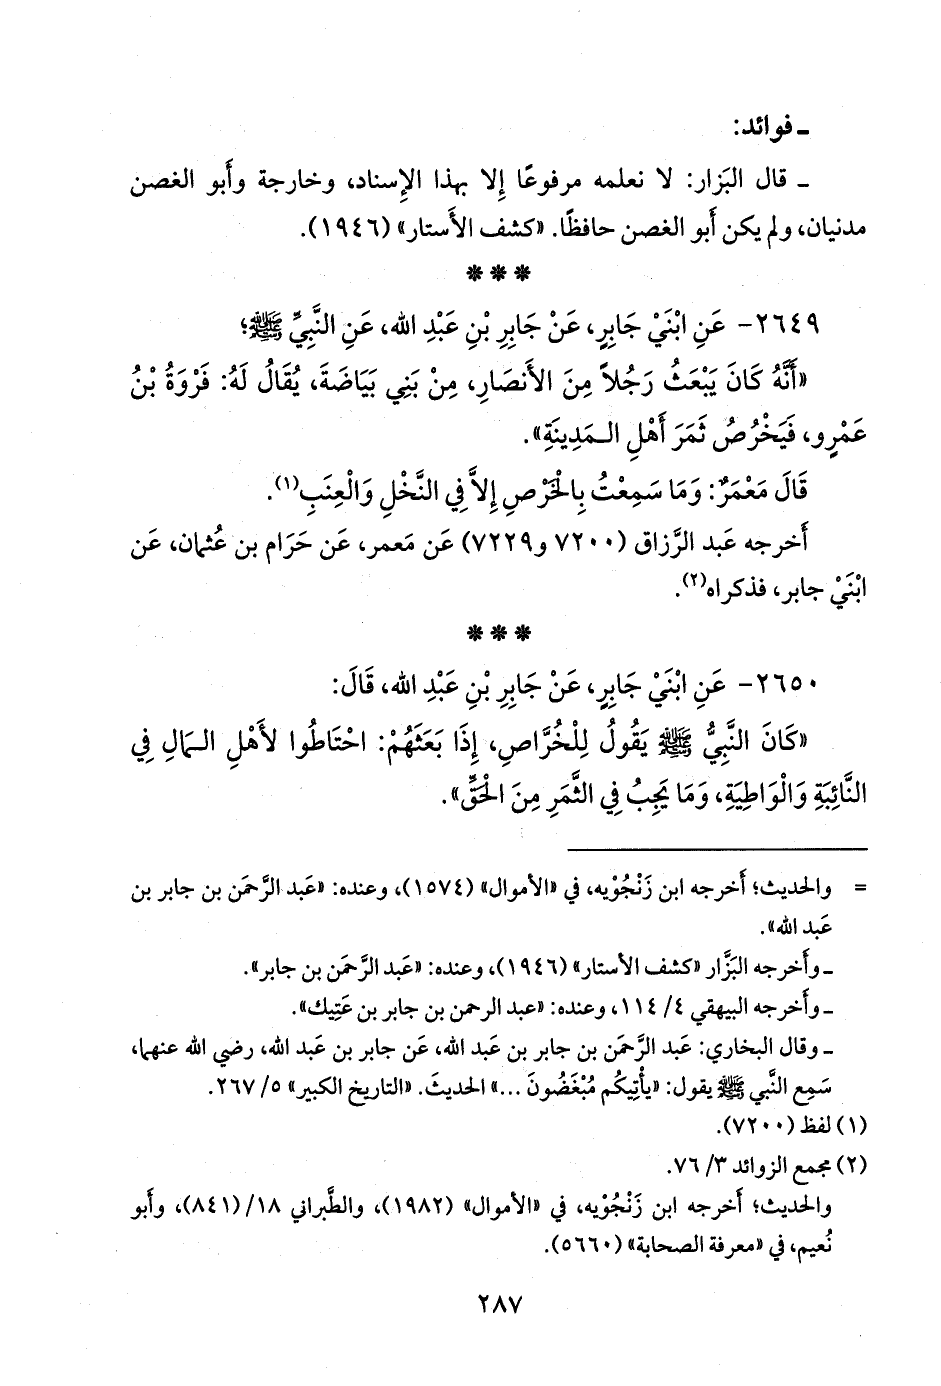 ـ فوائد:
ـ قال البَزار: لا نعلمه مرفوعًا إِلا بهذا الإِسناد، وخارجة وأَبو الغصن
مدنيان، ولم يكن أَبو الغصن حافظًا. «كشف الأَستار» (١٩٤٦).
***
٢٦٤٩- عَنِ ابْنَيْ جَابِرٍ، عَنْ جَابِرِ بْنِ عَبْدِ الله، عَنِ النَّبِيِّ ﷺ؛
«أَنَّهُ كَانَ يَبْعَثُ رَجُلاً مِنَ الأَنْصَارِ، مِنْ بَنِي بَيَاضَةَ، يُقَالُ لَهُ: فَرْوَةُ بْنُ
عَمْرٍو، فَيَخْرُصُ ثَمَرَ أَهْلِ الـمَدِينَةِ».
قَالَ مَعْمَرٌ: وَمَا سَمِعْتُ بِالْخَرْصِ إِلاَّ فِي النَّخْلِ وَالْعِنَبِ(١).
أَخرجه عَبد الرَّزاق (٧٢٠٠ و٧٢٢٩) عَن مَعمر، عَن حَرَام بن عُثمان، عَن
ابْنَيْ جابر، فذكراه(٢).
***
٢٦٥٠- عَنِ ابْنَيْ جَابِرٍ، عَنْ جَابِرِ بْنِ عَبْدِ الله، قَالَ:
«كَانَ النَّبِيُّ ﷺ يَقُولُ لِلْخُرَّاصِ، إِذَا بَعَثَهُمْ: احْتَاطُوا لأَهْلِ الـمَالِ فِي
النَّائِبَةِ وَالْوَاطِيَةِ، وَمَا يَجِبُ فِي الثَّمَرِ مِنَ الْحَقِّ».
= والحديث؛ أَخرجه ابن زَنْجُوْيه، في «الأموال» (١٥٧٤)، وعنده: «عَبد الرَّحمَن بن جابر بن
عَبد الله».
ـ وأَخرجه البَزَّار «كشف الأستار» (١٩٤٦)، وعنده: «عَبد الرَّحمَن بن جابر».
ـ وأَخرجه البيهقي ٤/ ١١٤، وعنده: «عبد الرحمن بن جابر بن عَتِيك».
ـ وقال البخاري: عَبد الرَّحمَن بن جابر بن عَبد الله، عَن جابر بن عَبد الله، رضي الله عنهما،
سَمِع النَّبي ﷺ يقول: «يأْتِيكُم مُبْغَضُونَ ...» الحديثَ. «التاريخ الكبير» ٥/ ٢٦٧.
(١) لفظ (٧٢٠٠).
(٢) مجمع الزوائد ٣/ ٧٦.
والحديث؛ أَخرجه ابن زَنْجُوْيه، في «الأموال» (١٩٨٢)، والطَّبراني ١٨/ (٨٤١)، وأَبو
نُعيم، في «معرفة الصحابة» (٥٦٦٠).
٢٨٧